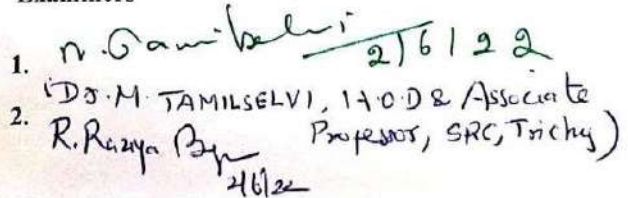 Examiners
1. M. Tamilselvi
2/6/22
(Dr. M. TAMILSELVI, H.O.D & Associate
Professor, SRC, Trichy)
2. R. Raziya
2/6/22